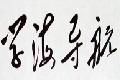 学海导航